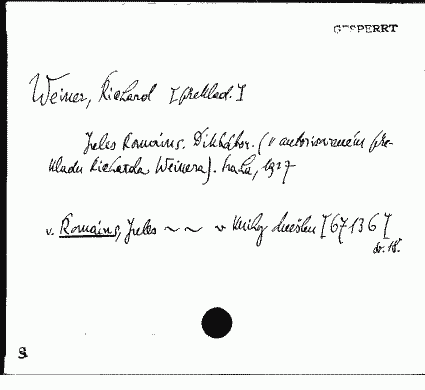 GESPERRT
Weiner, Richard [překlad.]
Jules Romains. Diktátor. (V autorisovaném pře-
kladu Richarda Weinera). Praha, 1927
v. Romains, Jules ~ ~ v Knihy dnešku [67136]
sv. 18.
S